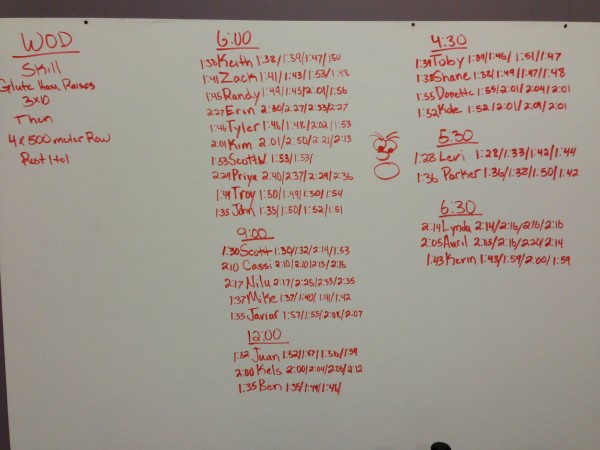 WOD
Skill
Glute Ham Raises
3x10
Then
4 x 500 meter Row
Rest 1 to 1
6:00
1:38 Keith 1:38/1:39/1:47/1:50
1:41 Zack 1:41/1:43/1:53/1:48
1:45 Randy 1:49/1:45/2:01/1:56
2:27 Erin 2:30/2:27/2:33/2:27
1:46 Tyler 1:46/1:48/2:02/1:53
2:01 Kim 2:01/2:50/2:21/2:13
1:53 Scott W. 1:53/1:53/
2:29 Priya 2:40/2:37/2:29/2:36
1:49 Troy 1:50/1:49/1:50/1:54
1:35 John 1:35/1:50/1:52/1:51
9:00
1:30 Scott 1:30/1:32/2:14/1:53
2:10 Cassi 2:10/2:10/2:13/2:16
2:17 Nilu 2:17/2:25/2:33/2:35
1:37 Mike 1:37/1:40/1:41/1:42
1:55 Javiar 1:57/1:55/2:08/2:07
12:00
1:32 Juan 1:32/1:47/1:56/1:59
2:00 Kels 2:00/2:04/2:05/2:12
1:35 Ben 1:35/1:49/1:46/
4:30
1:39 Toby 1:39/1:46/1:51/1:47
1:38 Shane 1:38/1:49/1:47/1:48
1:55 Donette 1:55/2:01/2:04/2:01
1:52 1:52/2:01/2:09/2:01
5:30
1:28 Levi 1:28/1:33/1:42/1:44
1:36 Parker 1:36/1:38/1:50/1:42
6:30
2:14 Lynda 2:14/2:16/2:16/2:16
2:05 Avril 2:05/2:16/2:20/2:14
1:43 Kevin 1:43/1:59/2:00/1:59